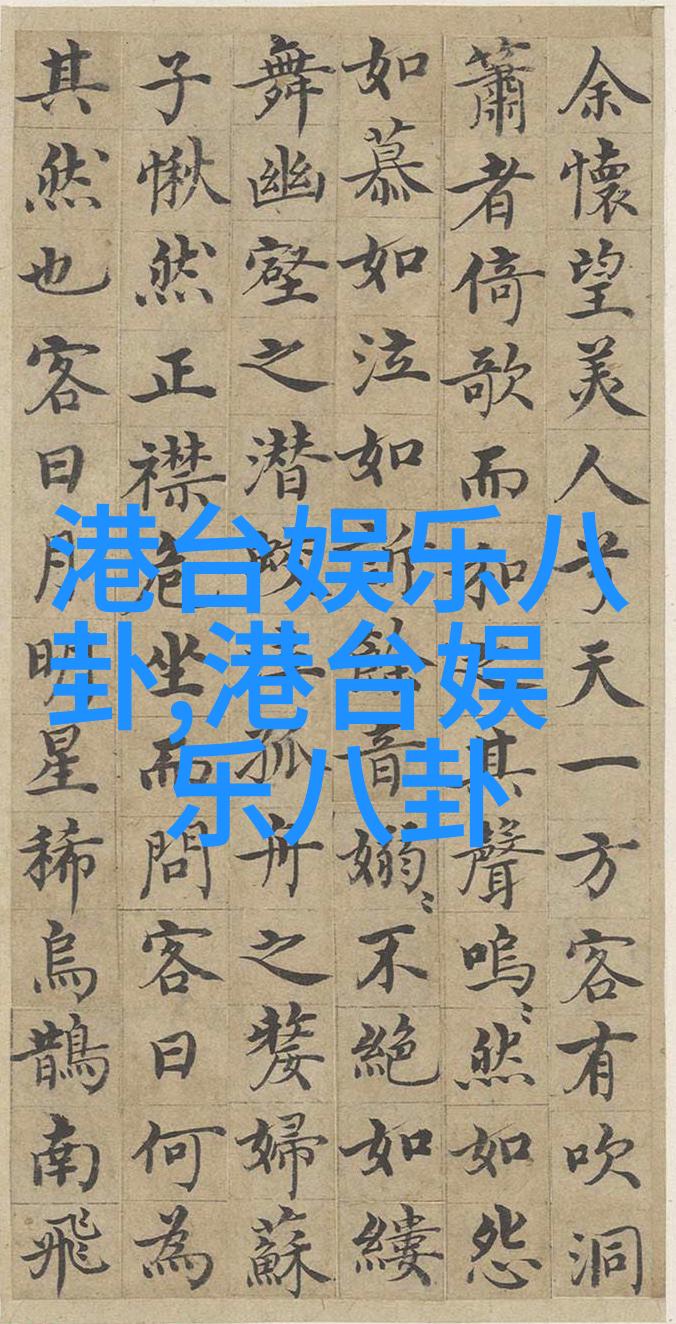 余懷望美人兮天一方客有吹洞
簫者倚歌而和之其聲嗚〻然如怨
如慕如泣如訴餘音嫋〻不絕如縷
舞幽壑之潛蛟泣孤舟之嫠婦蘇
子愀然正襟危坐而問客曰何為
其然也客曰月明星稀烏鵲南飛
港台娱乐八
卦,港台娱
乐八卦